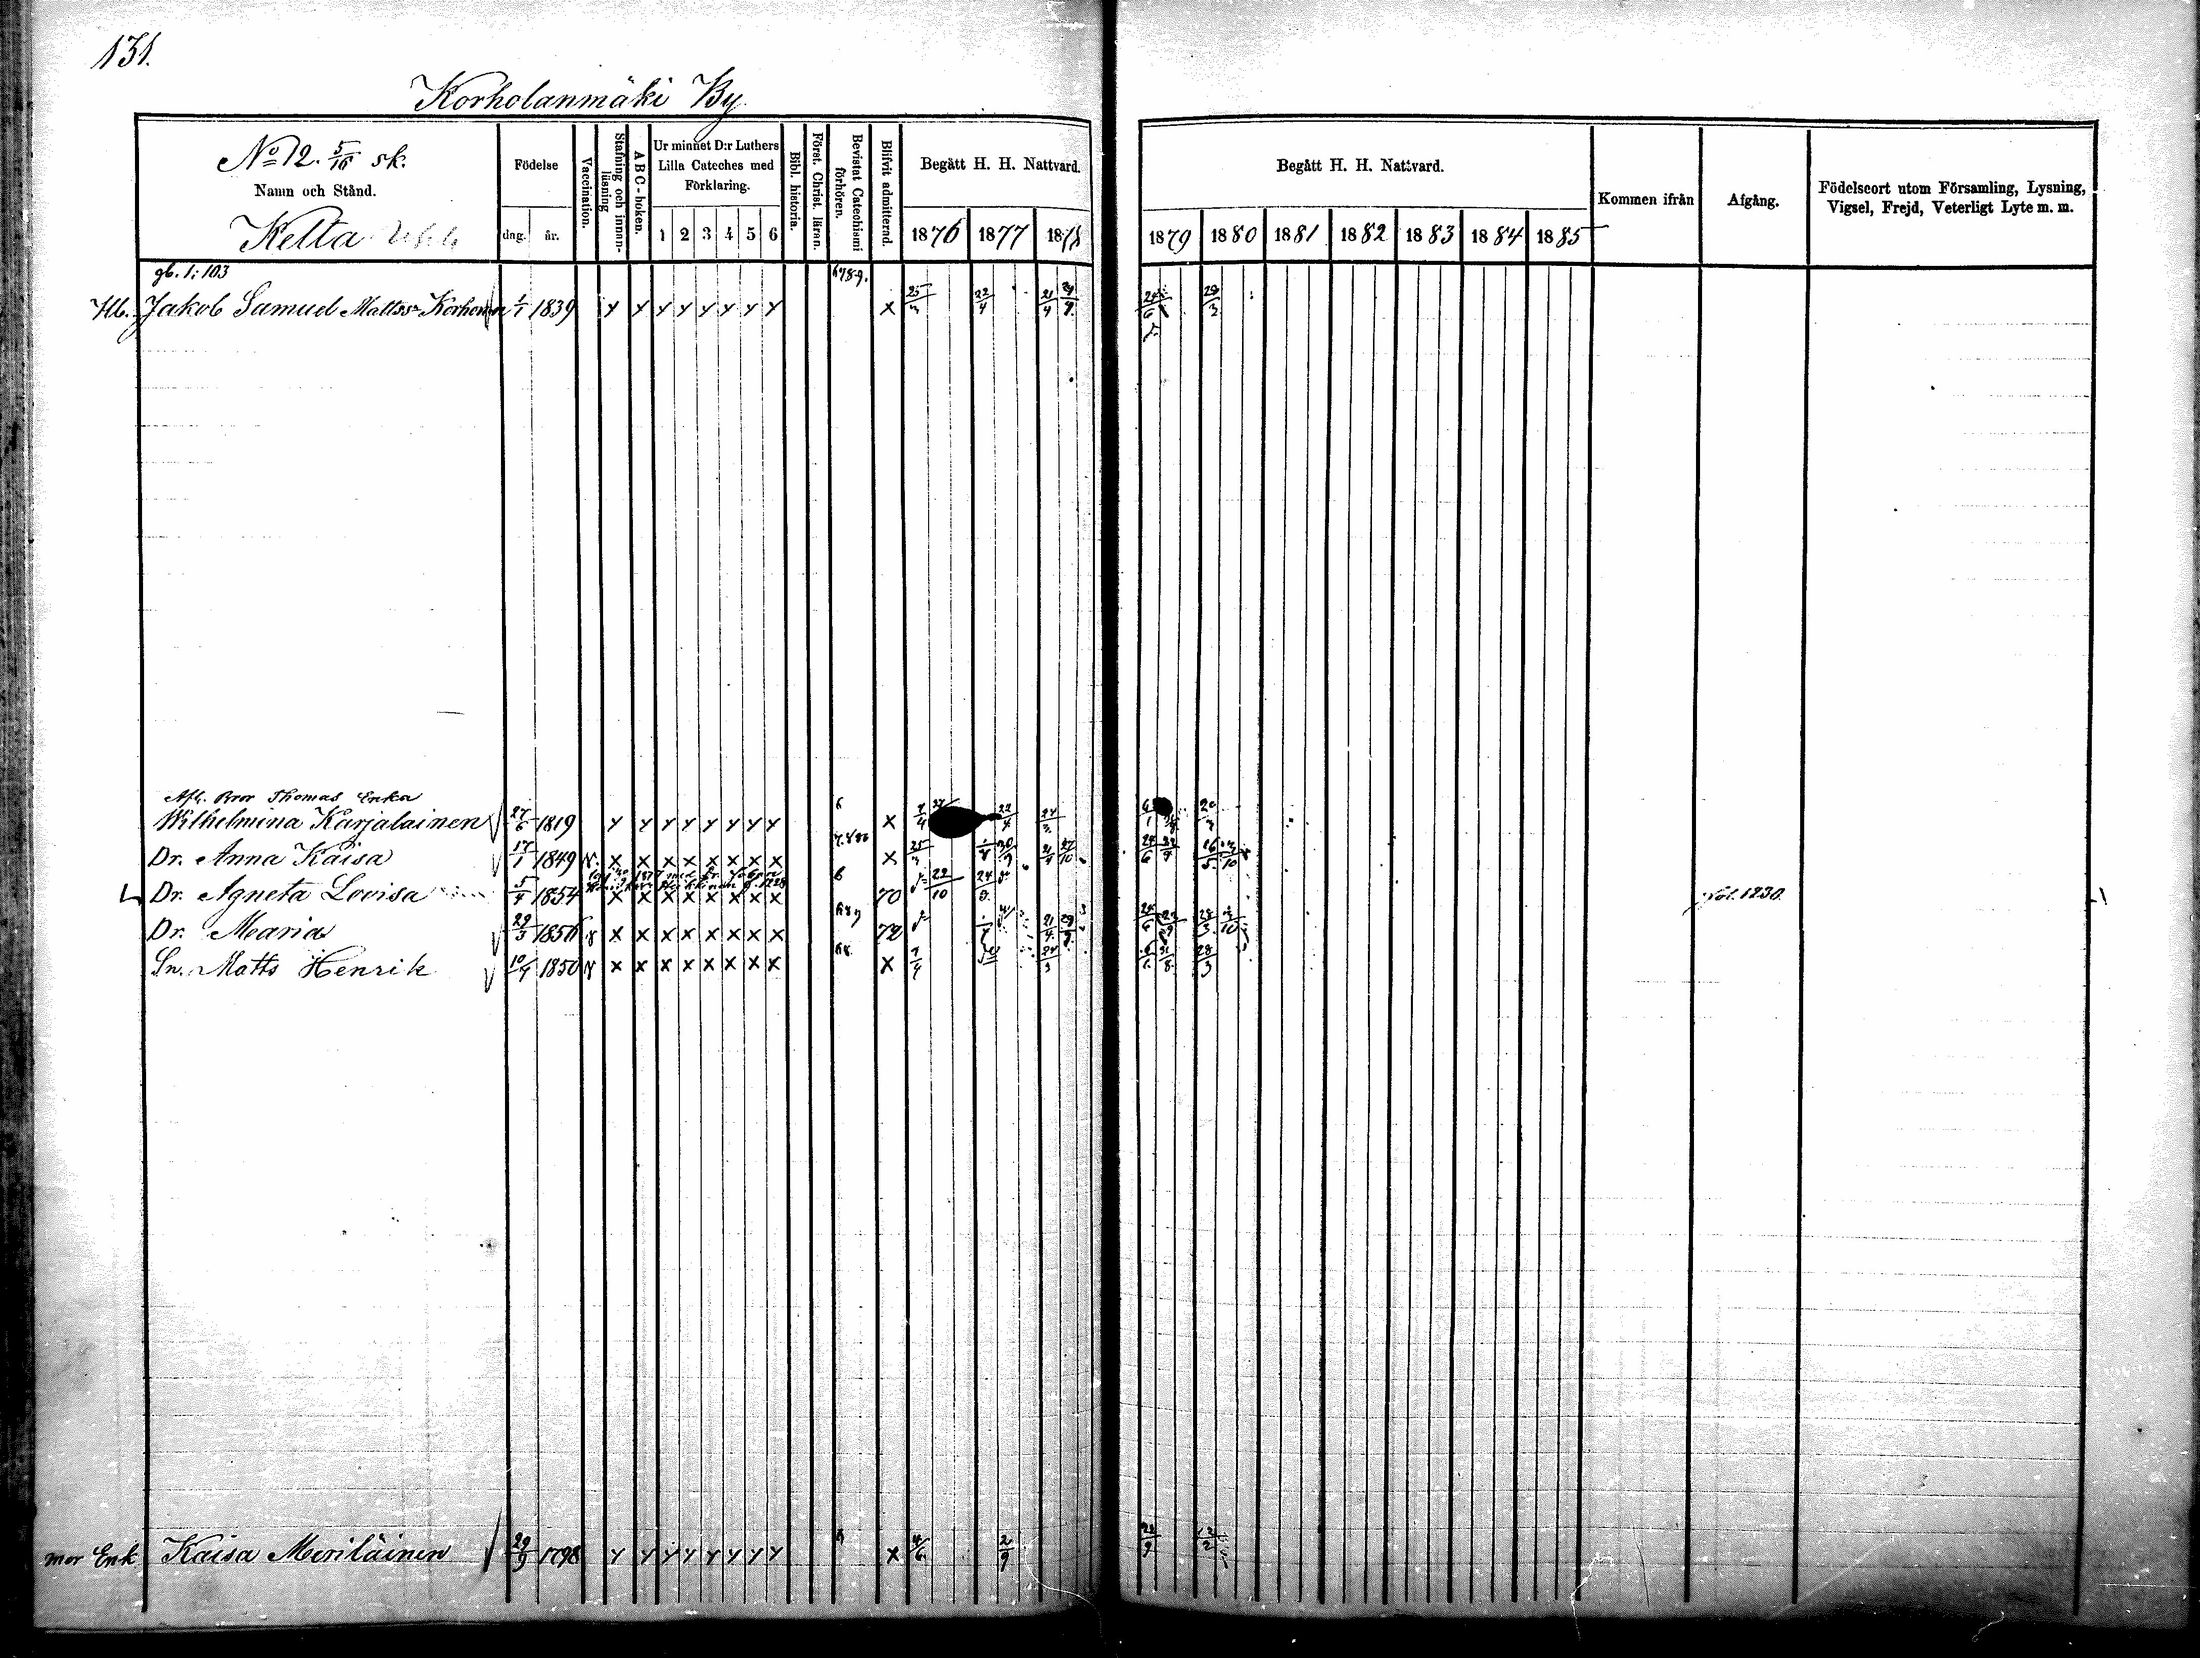 131.
Korholanmäki By
No 12. 5/16 sk.
Namn och Stånd.
Kelta
Födelse
dag. år.
Vaccination.
Stafning och innan-läsning
ABC-boken.
Ur minnet D:r Luthers Lilla Cateches med Förklaring.
1 2 3 4 5 6
Bibl. historia.
Först. Christ. läran.
Bevistat Catechismi förhören.
Blifvit admitterad.
Begått H. H. Nattvard.
1876 1877 1878
Begått H. H. Nattvard.
1879 1880 1881 1882 1883 1884 1885
Kommen ifrån
Afgång.
Födelseort utom Församling, Lysning, Vigsel, Frejd, Veterligt Lyte m. m.
gb. 1: 103 6789.
Hb. Jakob Samuel Mattss. Korhonen 1/1 1839 y y y y y y y y x 25/3 22/4 21/4 29/9 28/3
Afl. Bror Thomas Enka
Wilhelmina Karjalainen 27/6 1819 y y y y y y y y 6 x 7/4 22/4 24/3
Dr. Anna Kaisa 17/1 1849 v. x x x x x x x x x 25/3
Dr. Agneta Lovisa 5/4 1854 x x x x x x x x 6 70 22/10 Fol. 1230.
Dr. Maria 29/3 1856 v x x x x x x x x 72 21/4 29/9
Sn. Matts Henrik 10/4 1850 v x x x x x x x x 68 x 7/4 24/3 28/3
mor Enk. Kaisa Meriläinen 29/9 1798 y y y y y y y y x 4/6 2/9 12/2